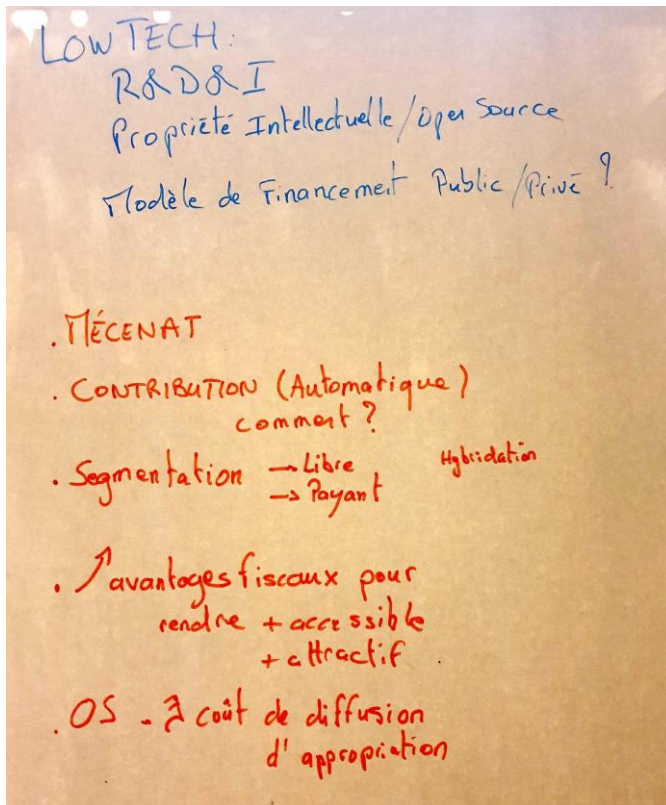 LOWTECH:
R&D&I
Propriété Intellectuelle/Open Source
Modèle de Financement Public/Privé ?
. MÉCENAT
. CONTRIBUTION (Automatique)
comment ?
. Segmentation → Libre Hybridation
→ Payant
. ↗ avantages fiscaux pour
rendre + accessible
+ attractif .
. OS - coût de diffusion
d'appropriation